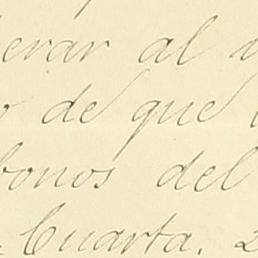 erar al
de que
bonos del
Cuarta. 2